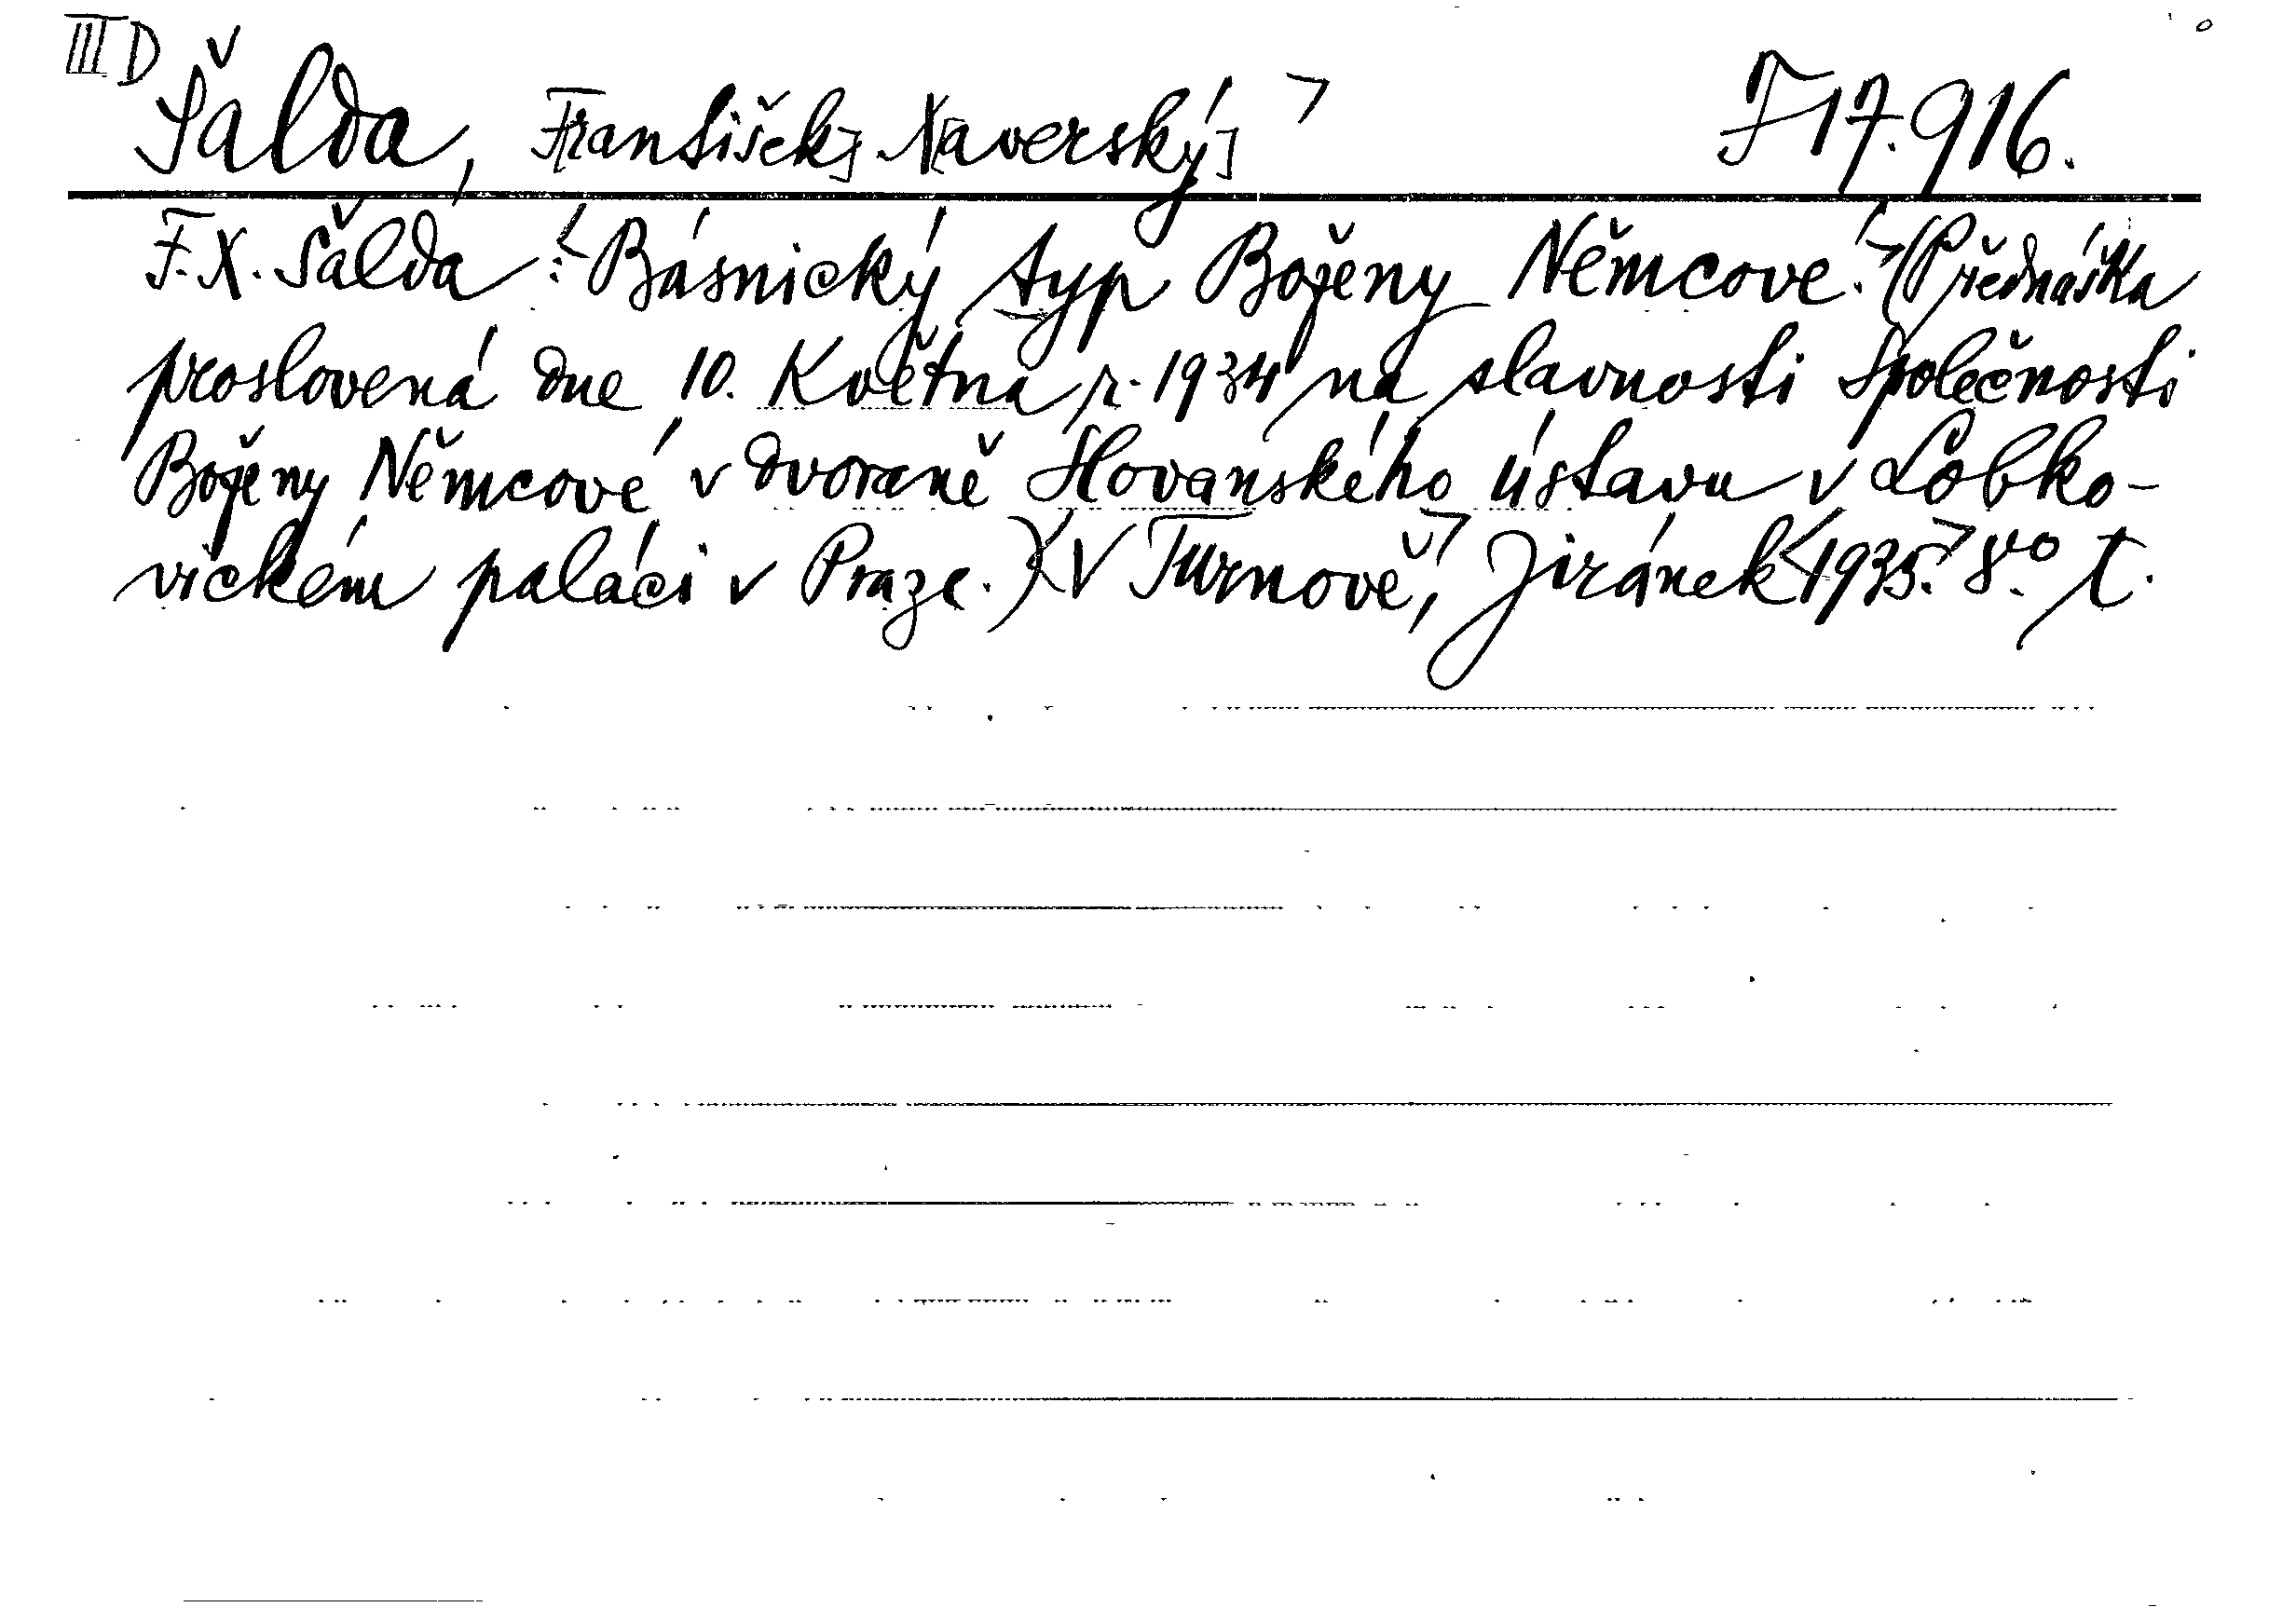 III D
Šalda, F[rantišek] X[averský] F 17.916.
F. X. Šalda: Básnický typ Boženy Němcové. (Přednáška
proslovená dne 10. Května r. 1934 na slavnosti Společnosti
Boženy Němcové v dvoraně Slovanského ústavu v Lobko-
vickém paláci v Praze.) V Turnově, Jiránek 1935. 8° t.